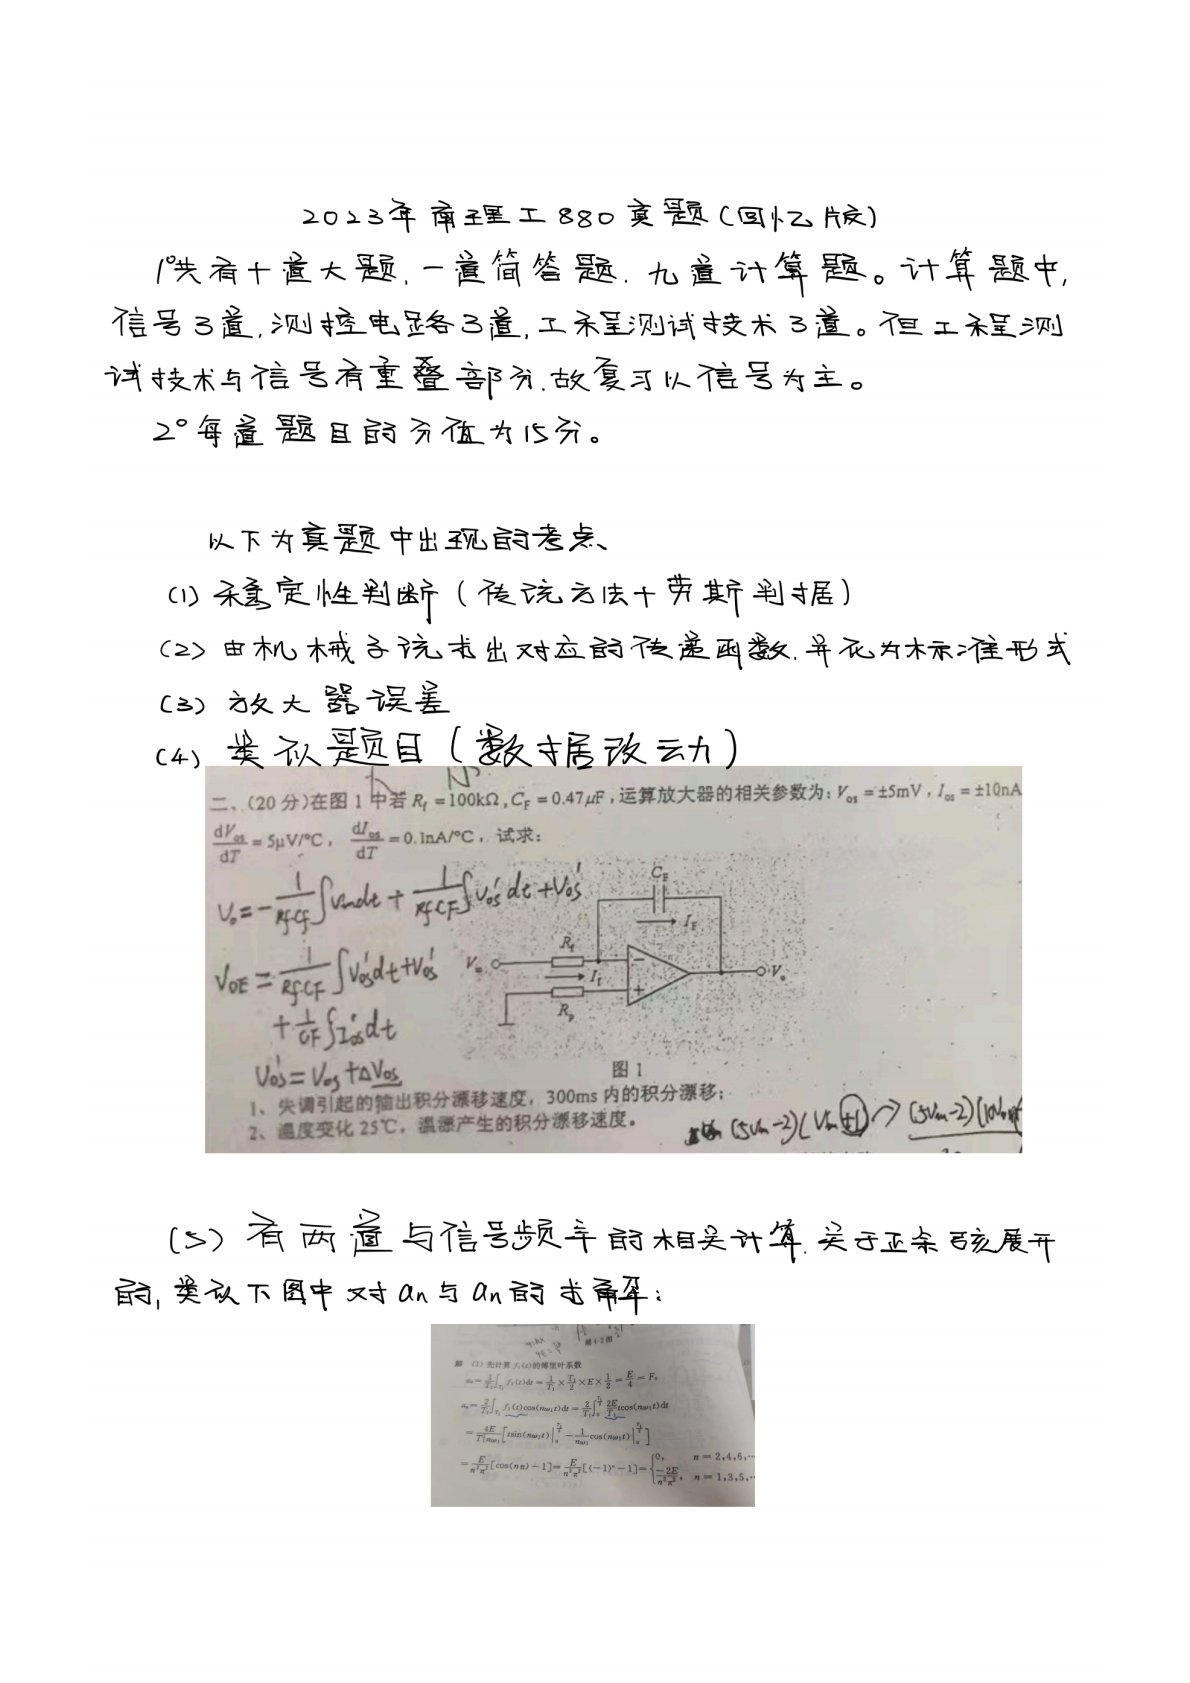 2023年南理工880真题(回忆版)
1°共有十道大题,一道简答题.九道计算题。计算题中,
信号3道,测控电路3道,工程测试技术3道。但工程测
试技术与信号有重叠部分,故复习以信号为主。
2°每道题目的分值为15分。
以下为真题中出现的考点、
(1) 稳定性判断(传统方法+劳斯判据)
(2) 由机械系统求出对应的传递函数.并化为标准形式
(3) 放大器误差
(4) 类似题目(数据改动)
二、(20分)在图1中若 R_f =100kΩ, C_F =0.47μF, 运算放大器的相关参数为: V_os =±5mV, I_os =±10nA
dV_os/dT = 5μV/°C, dI_os/dT = 0.1nA/°C, 试求:
V_o = -1/(RfCf) ∫Vin dt + 1/(RfCF) ∫V'os dt + V'os
V_OE = 1/(RfCF) ∫V'os dt + V'os
+ 1/CF ∫I'os dt
V'os = Vos + ΔVos
C_F
I_F
R_f
I_f
R_p
V_o
图1
1、失调引起的输出积分漂移速度, 300ms内的积分漂移;
2、温度变化25℃, 温漂产生的积分漂移速度。
(5Vin-2)(Vin+1) → (5Vin-2)(10V
(5) 有两道与信号频率的相关计算.关于正余弦展开
的,类似下图中对an与an的求解:
题4-2图
解 (1) 先计算 f₁(t)的傅里叶系数
a₀ = 1/T₁ ∫_T₁ f₁(t)dt = 1/T₁ × T₁/2 × E × 1/2 = E/4 = F₀
aₙ = 2/T₁ ∫_T₁ f₁(t)cos(nω₁t)dt = 2/T₁ ∫₀^(T₁/2) 2E/T₁ tcos(nω₁t)dt
= 4E/(T₁²nω₁) [tsin(nω₁t)|₀^(T₁/2) - 1/(nω₁) cos(nω₁t)|₀^(T₁/2)]
= E/(n²π²)[cos(nπ)-1] = E/(n²π²)[(-1)ⁿ-1] = {0, n=2,4,6,…
-2E/(n²π²), n=1,3,5,…